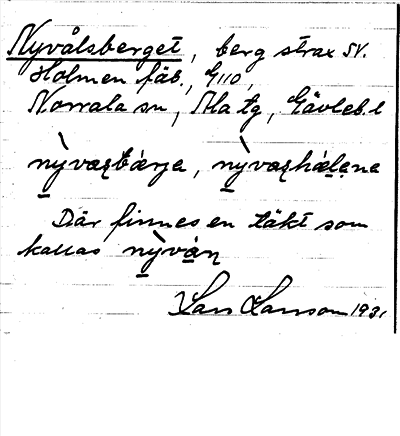 Nyvålsberget, berg strax SV.
Holmen fäb., G110,
Norrala sn, Ala tg, Gävleb. l
nỳvaʂbærja, nỳvaʂhálana
Där finnes en täkt som
kallas nỳván
Lars Larsson 1931